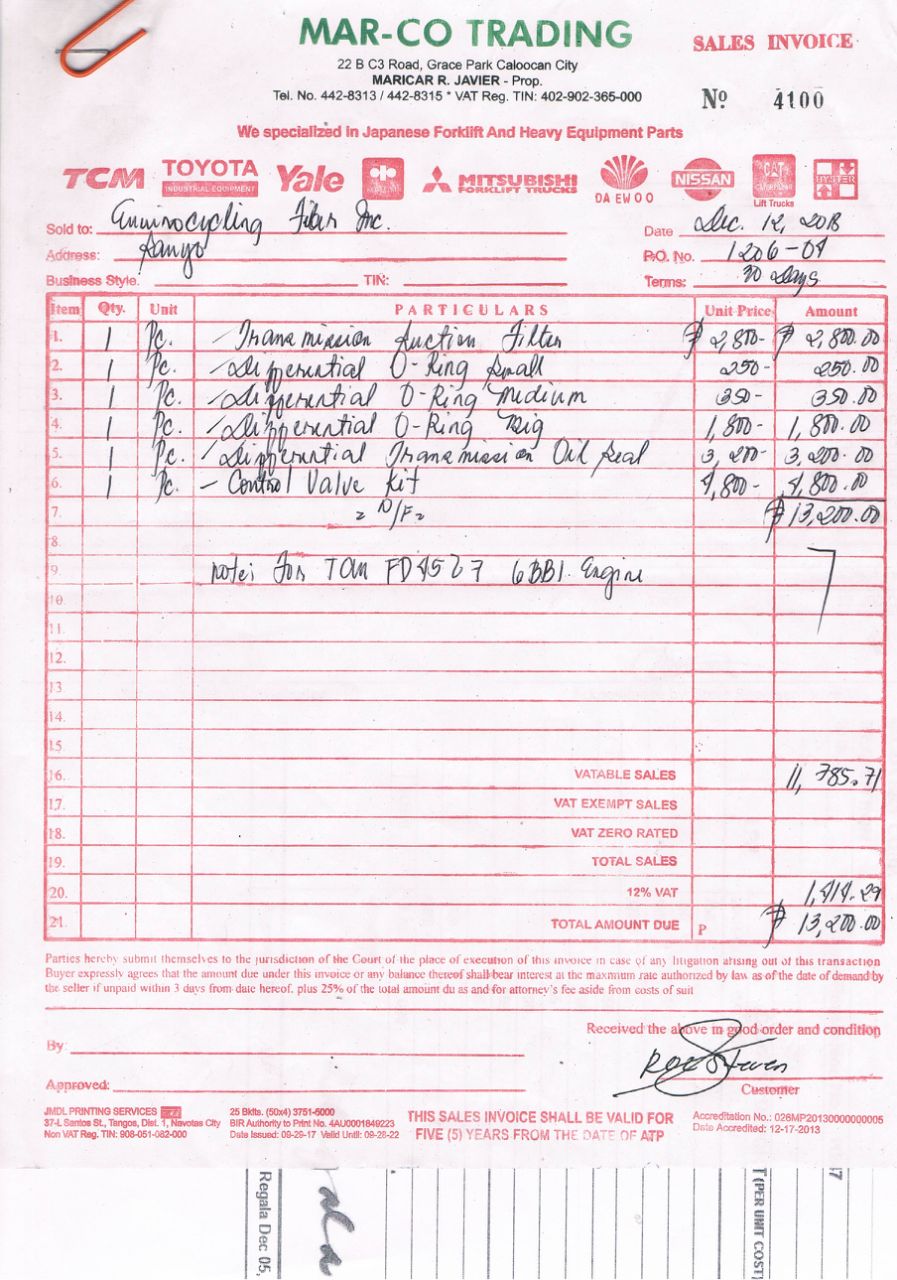 MAR-CO TRADING
SALES INVOICE
22 B C3 Road, Grace Park Caloocan City
MARICAR R. JAVIER - Prop.
Tel. No. 442-8313 / 442-8315 * VAT Reg. TIN: 402-902-365-000
Nº 4100
We specialized in Japanese Forklift And Heavy Equipment Parts
TCM TOYOTA INDUSTRIAL EQUIPMENT Yale MITSUBISHI FORKLIFT TRUCKS DAEWOO NISSAN CAT Lift Trucks HYSTER
Sold to: Envirocycling Fiber Inc. Date Dec. 12, 2018
Address: P.O. No. 1206-07
Business Style. TIN: Terms: 30 Days
Item Qty. Unit PARTICULARS Unit Price Amount
1. 1 Pc. - Transmission Suction Filter ₱ 2,800- ₱ 2,800.00
2. 1 Pc. - Differential O-Ring Small 250- 250.00
3. 1 Pc. - Differential O-Ring Medium 350- 350.00
4. 1 Pc. - Differential O-Ring Big 1,800- 1,800.00
5. 1 Pc. - Differential Transmission Oil Seal 3,200- 3,200.00
6. 1 Pc. - Control Valve Kit 4,800- 4,800.00
7. = N/F = ₱ 13,200.00
8.
9. Note: For TCM FD45Z7 6BB1 Engine
10.
11.
12.
13.
14.
15.
16. VATABLE SALES 11,785.71
17. VAT EXEMPT SALES
18. VAT ZERO RATED
19. TOTAL SALES
20. 12% VAT 1,414.29
21. TOTAL AMOUNT DUE P ₱ 13,200.00
Parties hereby submit themselves to the jurisdiction of the Court of the place of execution of this invoice in case of any litigation arising out of this transaction
Buyer expressly agrees that the amount due under this invoice or any balance thereof shall bear interest at the maximum rate authorized by law as of the date of demand by
the seller if unpaid within 3 days from date hereof. plus 25% of the total amount du as and for attorney's fee aside from costs of suit
Received the above in good order and condition
By:
Approved:
Customer
JMDL PRINTING SERVICES
37-L Santos St., Tangos, Dist. 1, Navotas City
Non VAT Reg. TIN: 908-051-082-000
25 Bklts. (50x4) 3751-5000
BIR Authority to Print No. 4AU0001849223
Date Issued: 09-29-17 Valid Until: 09-28-22
THIS SALES INVOICE SHALL BE VALID FOR
FIVE (5) YEARS FROM THE DATE OF ATP
Accreditation No.: 026MP20130000000005
Date Accredited: 12-17-2013
Regala Dec 05,
(PER UNIT COST)